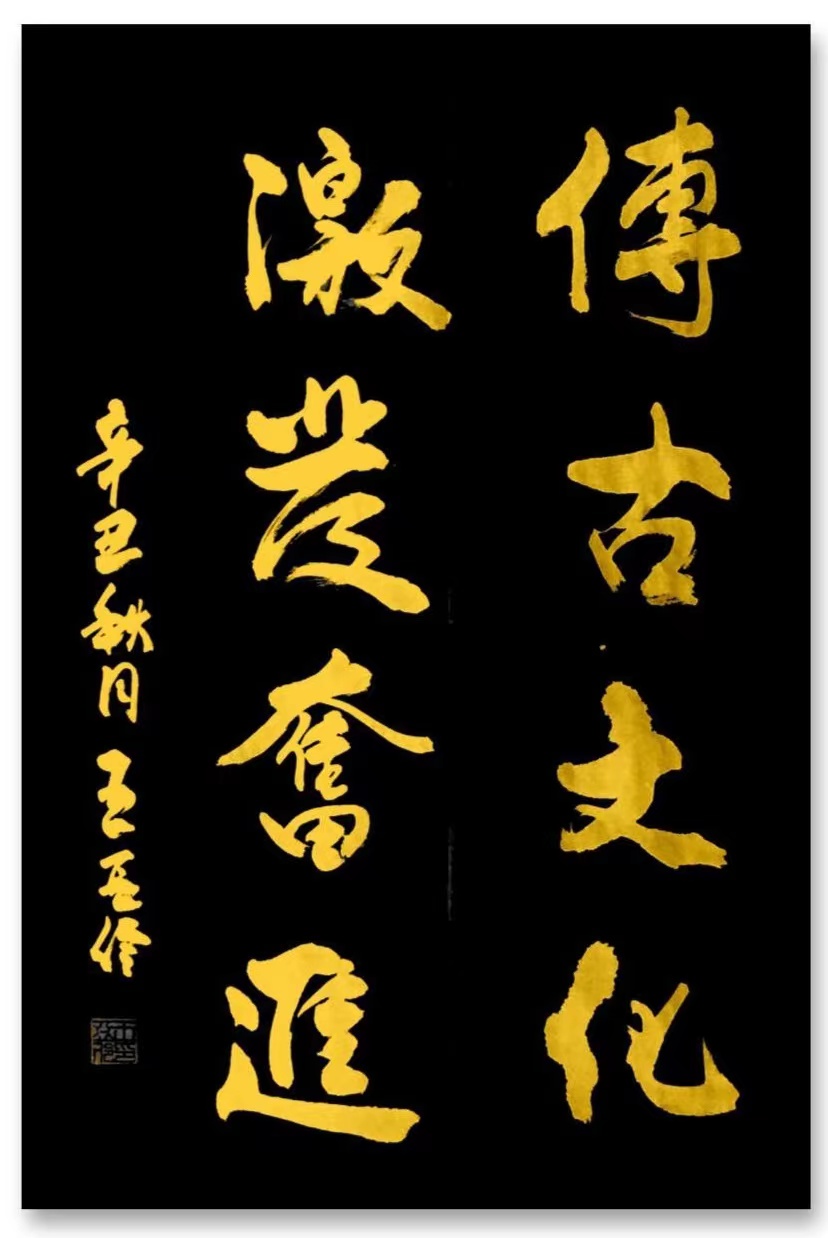 傳古文化
激發奮進
辛丑秋月 王